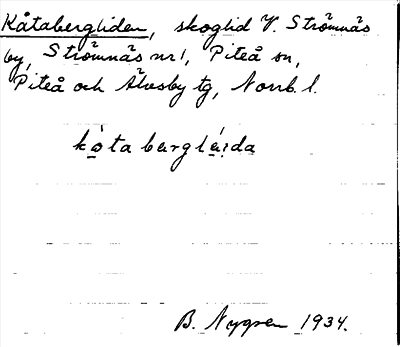 Kåtabergliden, skoglid V. Strömnäs
by, Strömnäs nr 1, Piteå sn,
Piteå och Älvsby tg, Norrb. l.
kȯ̀ta bærglɩ́:da
B. Nygren 1934.